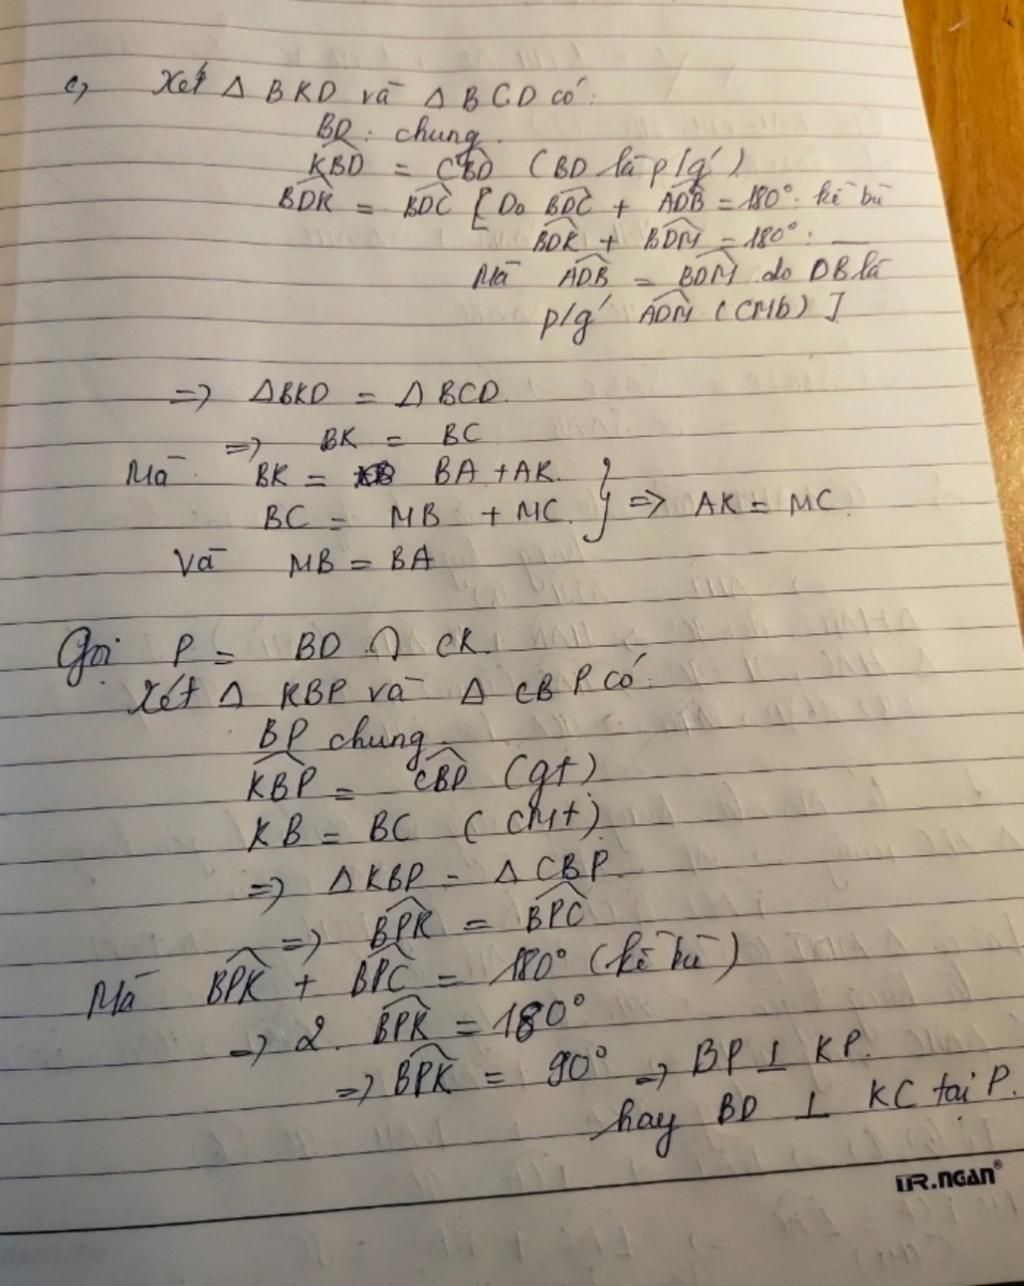 c, Xét Δ BKD và Δ BCD có:
BD: chung.
KBD = CBD (BD là p/g')
BDK = BDC [Do BDC + ADB = 180°: kề bù
BDK + BDM = 180°: __
Mà ADB = BDM do DB là
p/g' ADM (CMb) ]
=> ΔBKD = ΔBCD.
=> BK = BC
Mà BK = BA + AK.
BC = MB + MC. } => AK = MC.
Và MB = BA
Gọi P = BD ∩ CK.
Xét Δ KBP và Δ CBP có:
BP chung.
KBP = CBP (gt)
KB = BC (CMt)
=> ΔKBP = ΔCBP.
=> BPK = BPC
Mà BPK + BPC = 180° (kề bù)
=> 2. BPK = 180°
=> BPK = 90° => BP ⊥ KP.
hay BD ⊥ KC tại P.
TR.NGAN®